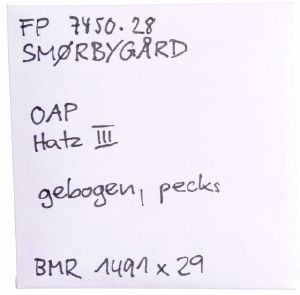 FP 7450.28
SMØRBYGÅRD
OAP
Hatz III
gebogen, pecks
BMR 1491 x 29